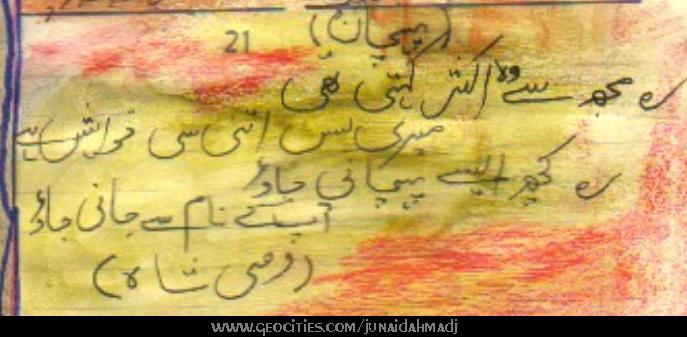 (پہچان)
21
مجھ سے وہ اکثر کہتی تھی
میری بس اتنی سی خواہش ہے
کچھ ایسے پہچانی جاؤں
آپ کے نام سے جانی جاؤں
(وصی شاہ)
www.geocities.com/junaidahmadj